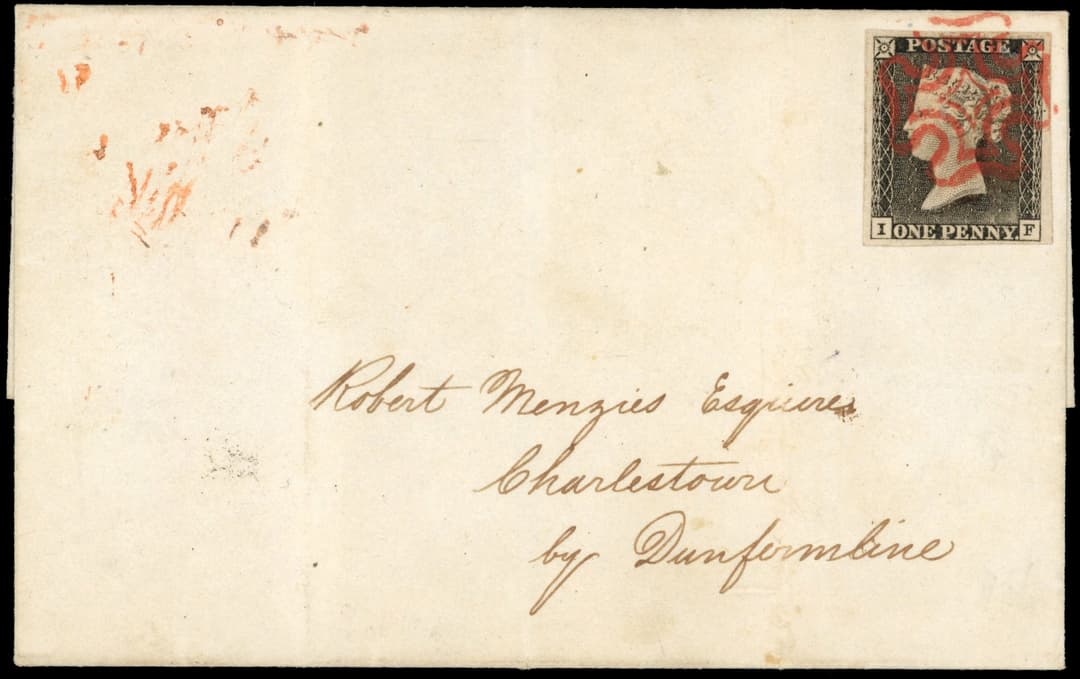 POSTAGE
I ONE PENNY. F
Robert Menzies Esquire
Charlestown
by Dunfermline